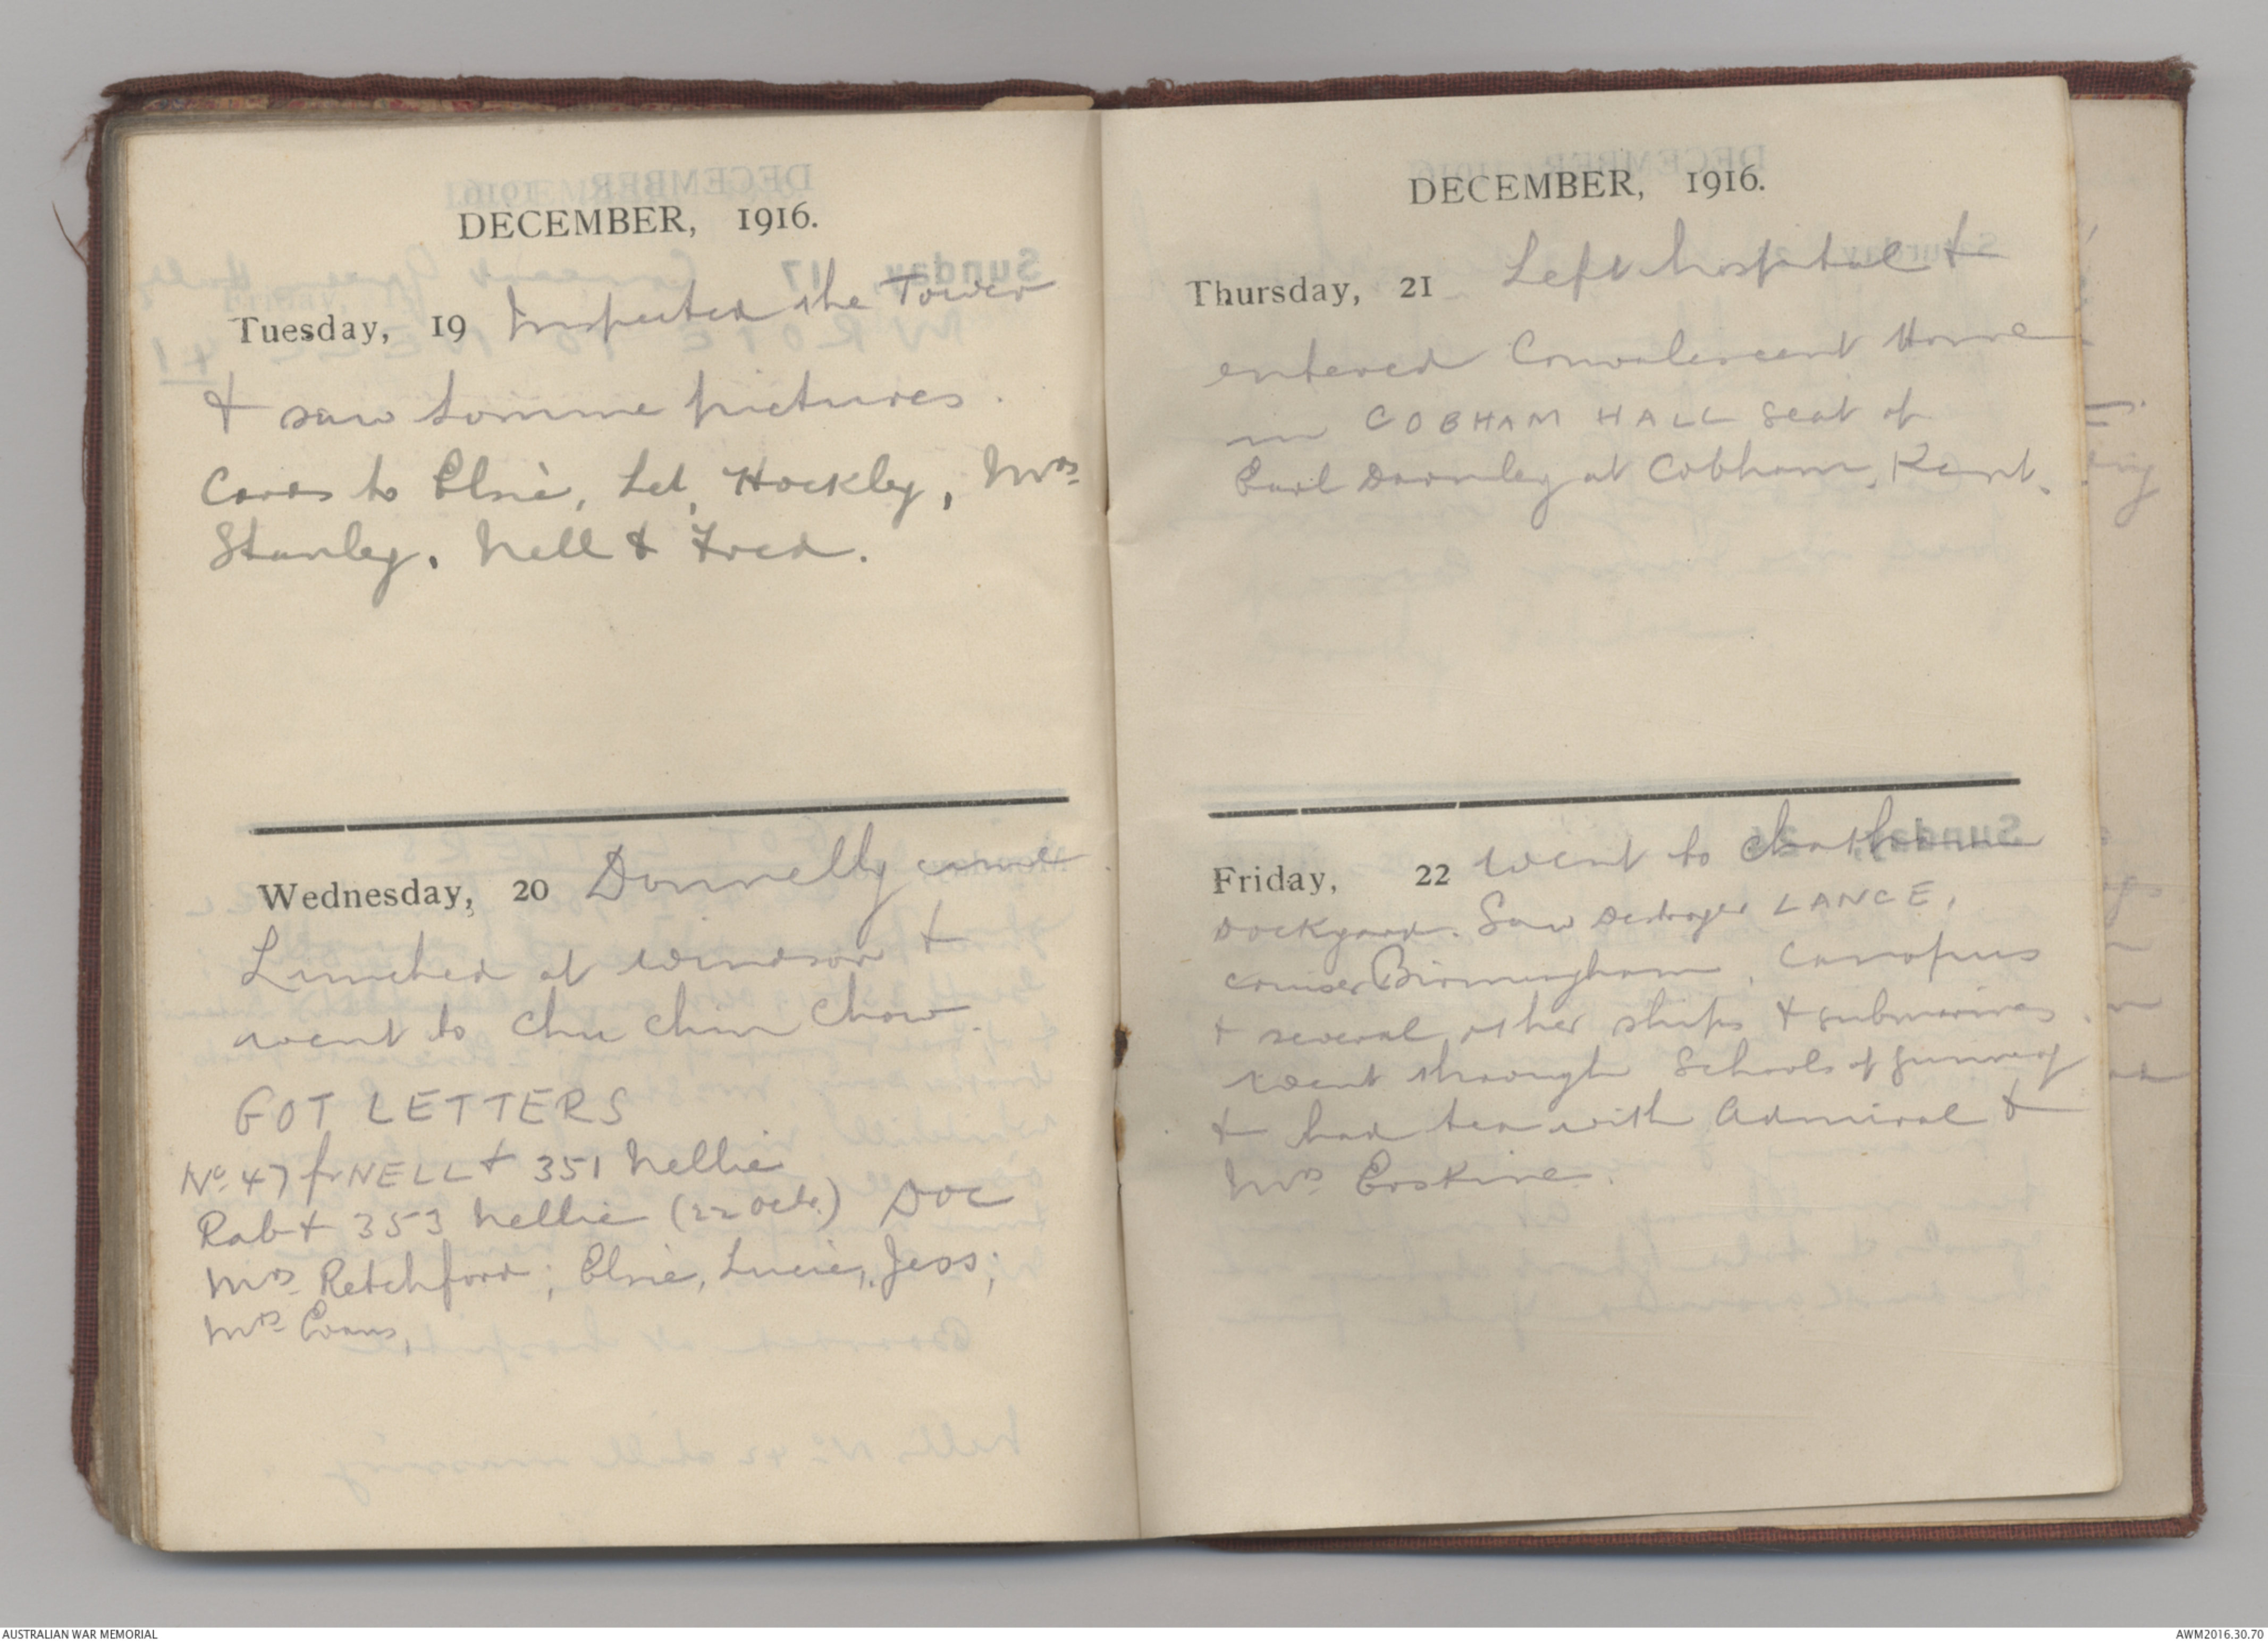 DECEMBER, 1916.
Tuesday, 19 Inspected the Tower
& saw Somme pictures.
Cards to Elsie, Let, Hockley, Mrs
Stanley, Nell & Fred.
Wednesday, 20 Donnelly came
Lunched at Windsor &
went to Chu Chin Chow.
GOT LETTERS
No. 47 fr NELL & 351 Nellie
Rab & 353 Nellie (22 Oct.) DOC
Mrs Retchford; Elsie, Lucie, Jess;
Mrs Evans,
DECEMBER, 1916.
Thursday, 21 Left hospital &
entered Convalescent Home
in COBHAM HALL seat of
Earl Darnley at Cobham, Kent.
Friday, 22 Went to Chatham
Dockyard. Saw Destroyer LANCE,
cruiser Birmingham, Canopus
& several other ships & submarines.
Went through Schools of Gunnery
& had tea with Admiral &
Mrs Erskine.
AUSTRALIAN WAR MEMORIAL
AWM2016.30.70